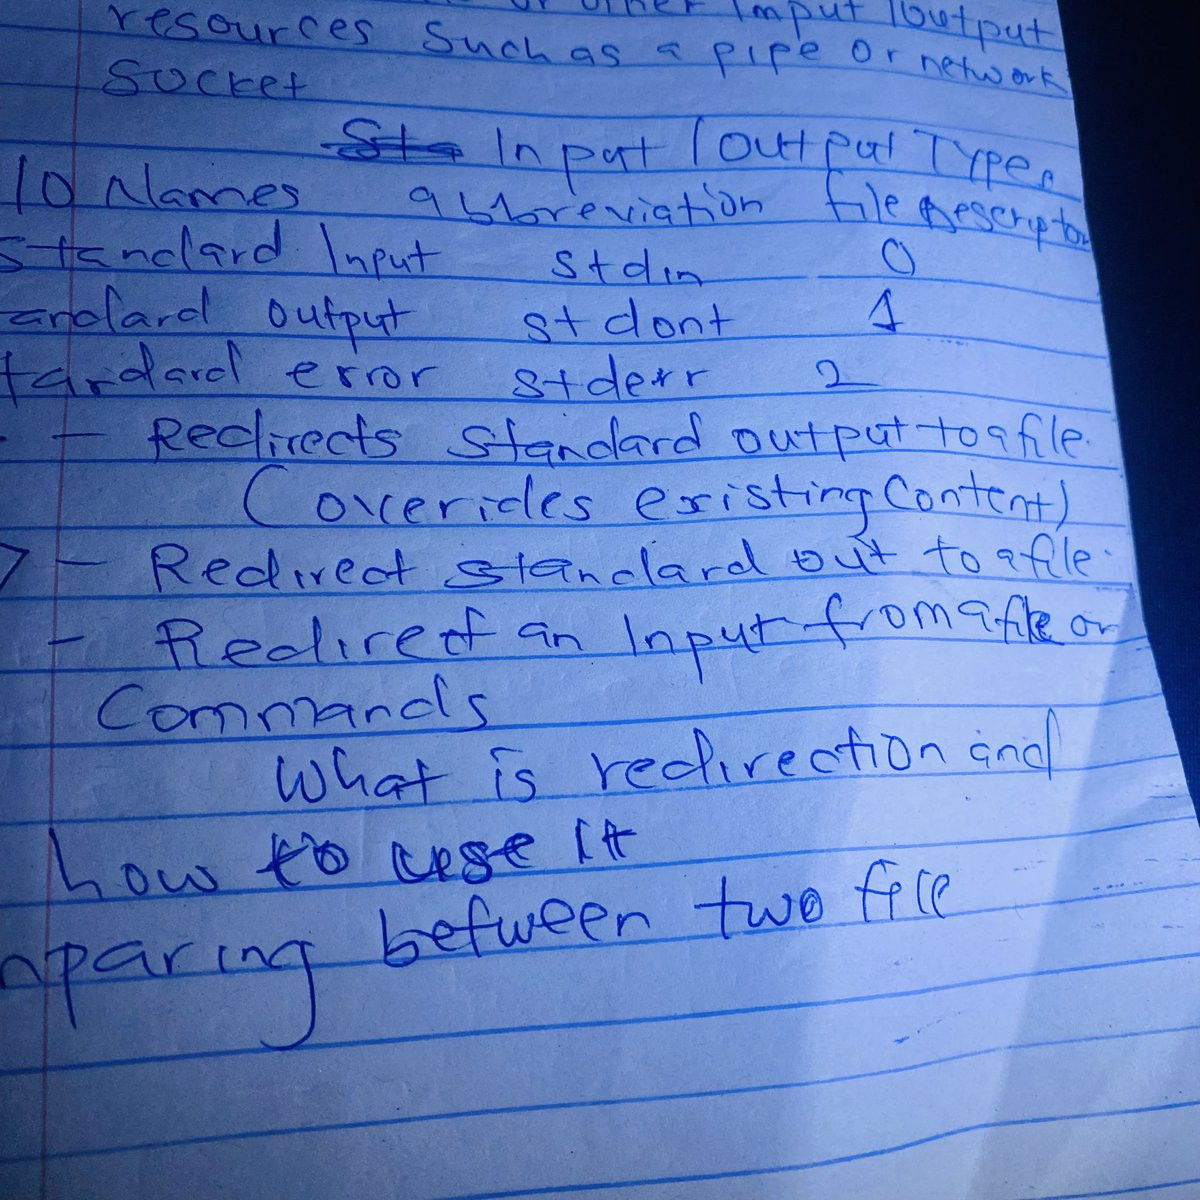 or other Imput /output
resources such as a pipe or network
Socket
Input / output Types
IO Names abbreviation file descriptor
Standard Input stdin 0
andard output stdout 1
tandard error stderr 2
- Redirects Standard output to a file.
(overides existing Content)
> - Redirect standard out to a file.
- Redirect an Input from a file or
Commands
What is redirection and
how to use it
mparing between two file